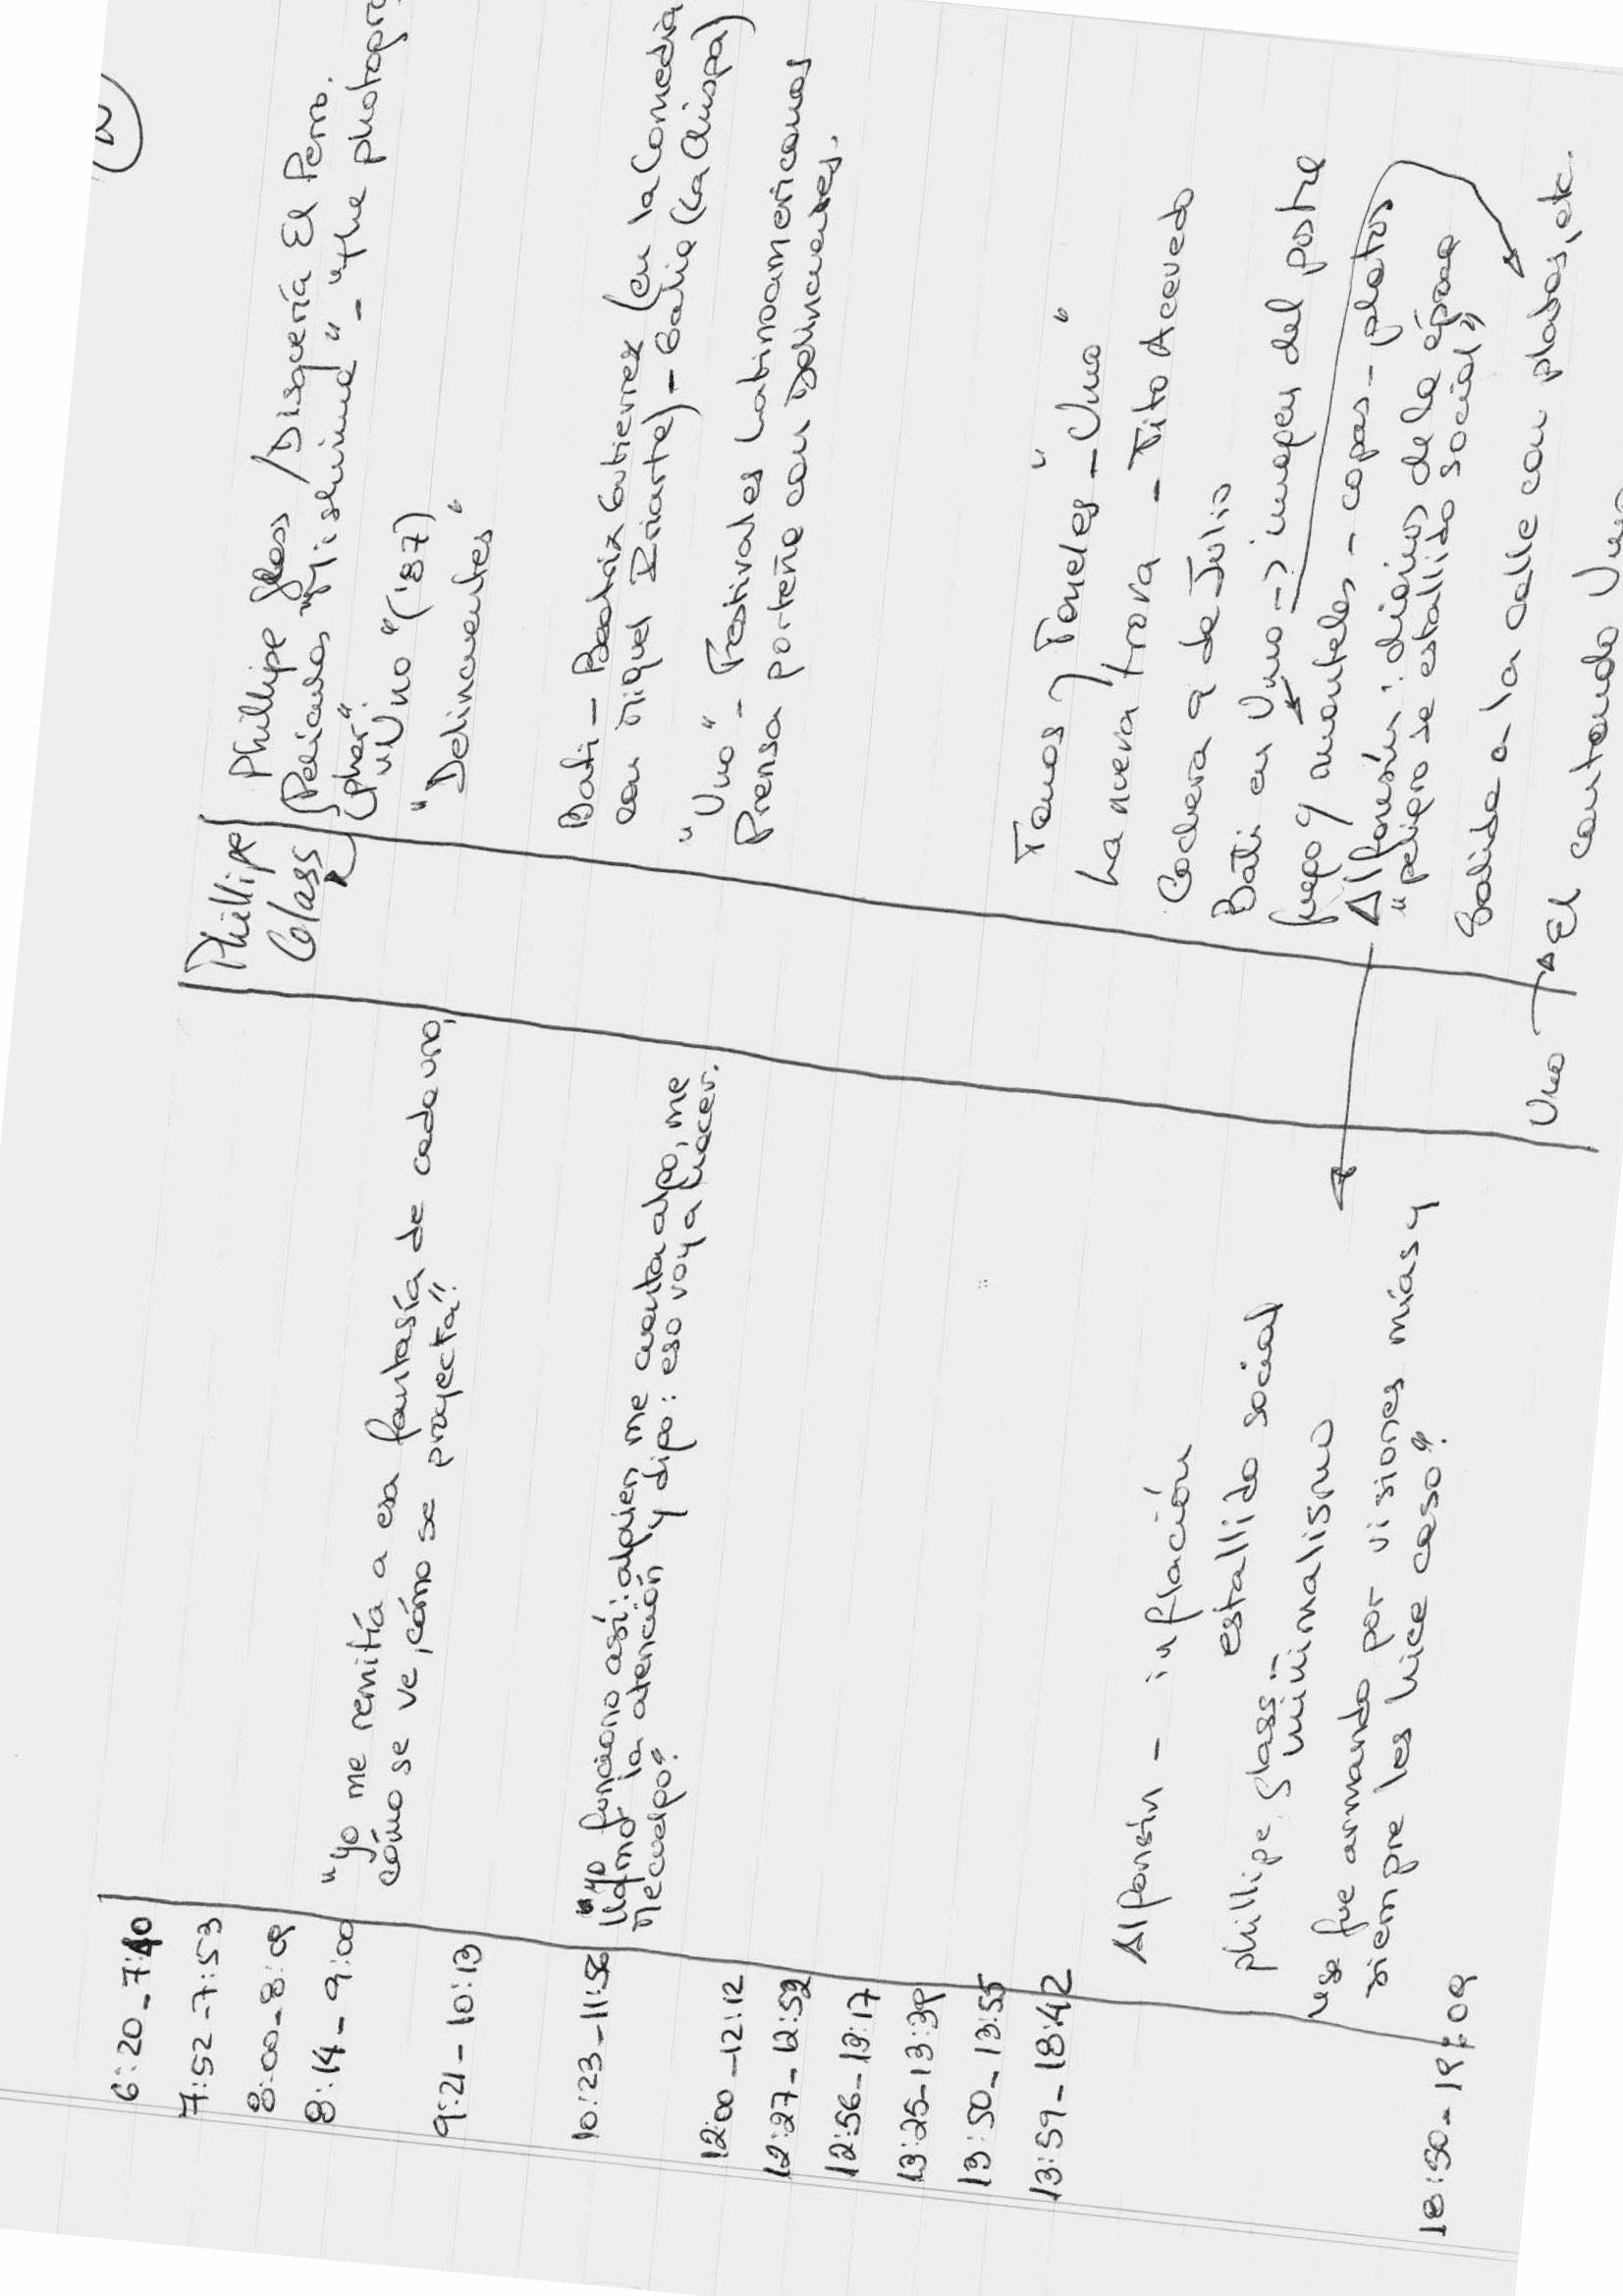 2
6:20-7:40
7:52-7:53
8:00-8:09
8:14-9:00
9:21-10:13
10:23-11:56
12:00-12:12
12:27-12:52
12:56-13:17
13:25-13:39
13:50-13:55
13:59-18:42
18:50-19:09
"yo me remitía a esa fantasía de cada uno,
cómo se ve, cómo se proyecta".
"yo funciono así: alguien me cuenta algo, me
llamó la atención y digo: eso voy a hacer.
Me cuelgo".
Alfonsín - inflación
estallido social
phillipe glass:
minimalismo
"se fue armando por visiones mías y
siempre les hice caso".
Phillipe
Glass
Phillipe glass / Disquería El Perro.
(Película "Mishima" - "the photogra
pher".
"Uno" ('87)
"Delincuentes"
Bati - Beatriz Gutierrez (en la Comedia
con Miguel Iriarte) - Galia (La Chispa)
"Uno" - Festivales Latinoamericanos
Prensa porteña con Delincuentes.
Tonos y Toneles - "Uno"
La nueva trova - Tito Acevedo
Cochera 9 de Julio
Bati en Uno → imagen del postre
fuego y manteles - copas - platos
Alfonsín: diarios de la época
"peligro se estallido social"
Salida a la calle con platos, etc.
Uno → El cantando Uno